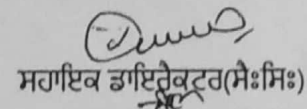 ਸਹਾਇਕ ਡਾਇਰੈਕਟਰ(ਸੈਃਸਿਃ)